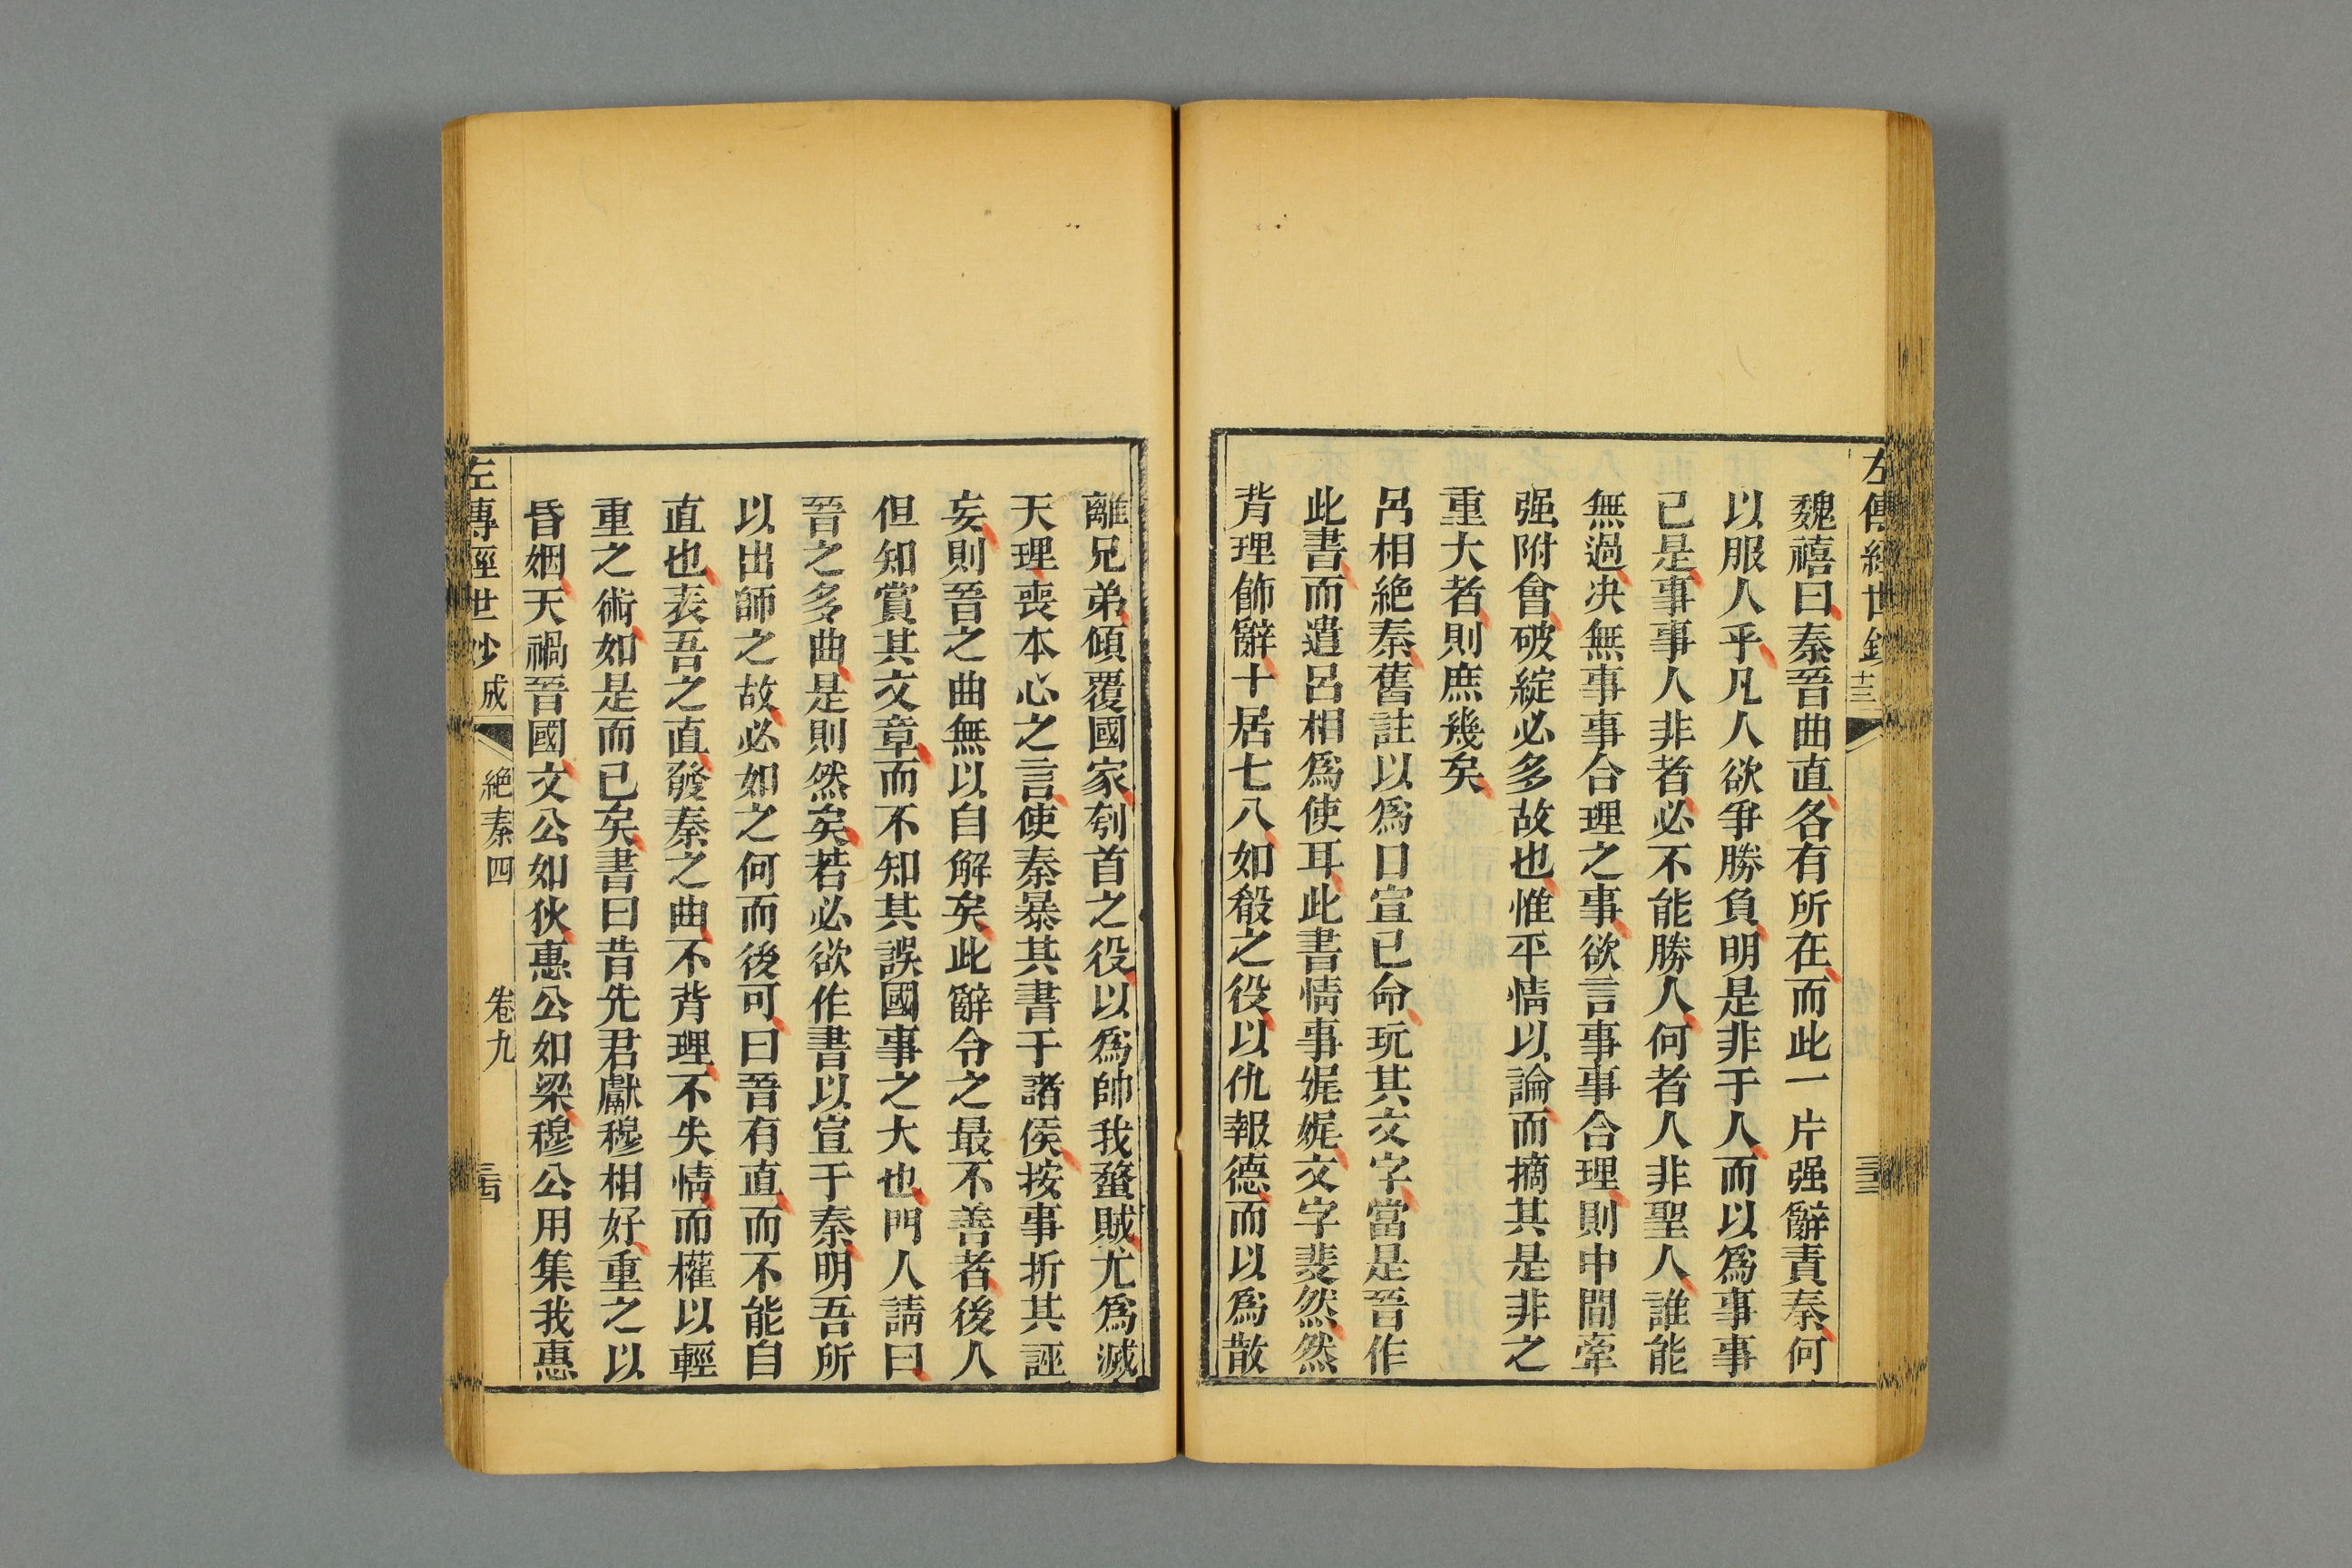 左傳經世鈔 十三 三三
魏禧曰秦晉曲直各有所在而此一片强辭責秦何
以服人乎凡人欲爭勝負明是非于人而以爲事事
已是事事人非者必不能勝人何者人非聖人誰能
無過决無事事合理之事欲言事事合理則中間牽
强附會破綻必多故也惟平情以論而摘其是非之
重大者則庶幾矣
呂相絶秦舊註以爲口宣已命玩其文字當是晉作
此書而遣呂相爲使耳此書情事娓娓文字斐然然
背理飾辭十居七八如殽之役以仇報德而以爲散
離兄弟傾覆國家刳首之役以爲帥我蝥賊尤爲滅
天理喪本心之言使秦暴其書于諸侯按事折其誣
妄則晉之曲無以自解矣此辭令之最不善者後人
但知賞其文章而不知其誤國事之大也門人請曰
晉之多曲是則然矣若必欲作書以宣于秦明吾所
以出師之故必如之何而後可曰晉有直而不能自
直也表吾之直發秦之曲不背理不失情而權以輕
重之術如是而已矣書曰昔先君獻穆相好重之以
昏姻天禍晉國文公如狄惠公如梁穆公用集我惠
左傳經世鈔 成 絶秦四 卷九 三四